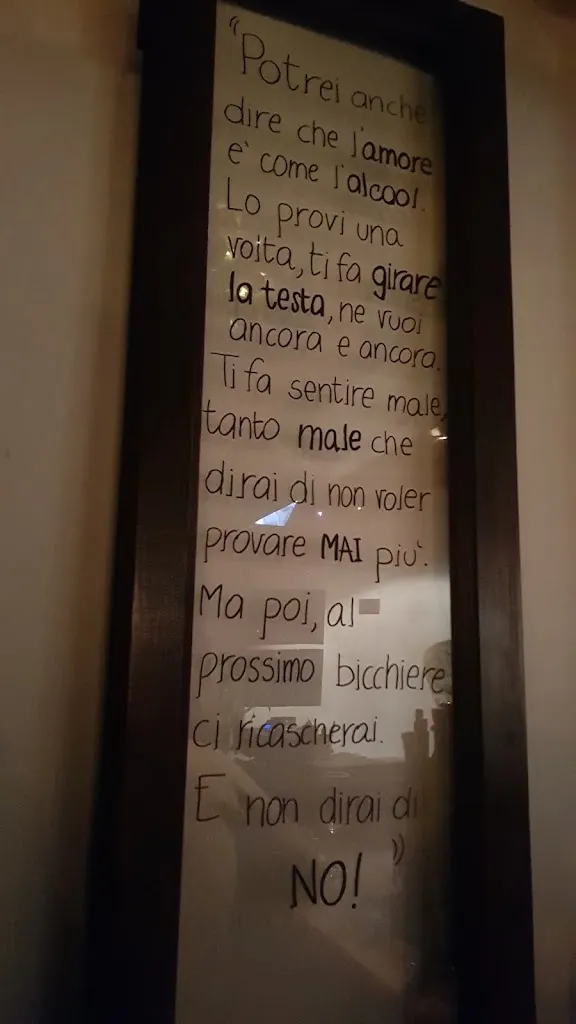 “Potrei anche
dire che l'amore
e' come l'alcool.
Lo provi una
volta, ti fa girare
la testa, ne vuoi
ancora e ancora.
Ti fa sentire male,
tanto male che
dirai di non voler
provare MAI piu'.
Ma poi, al
prossimo bicchiere
ci ricascherai.
E non dirai di
NO!”